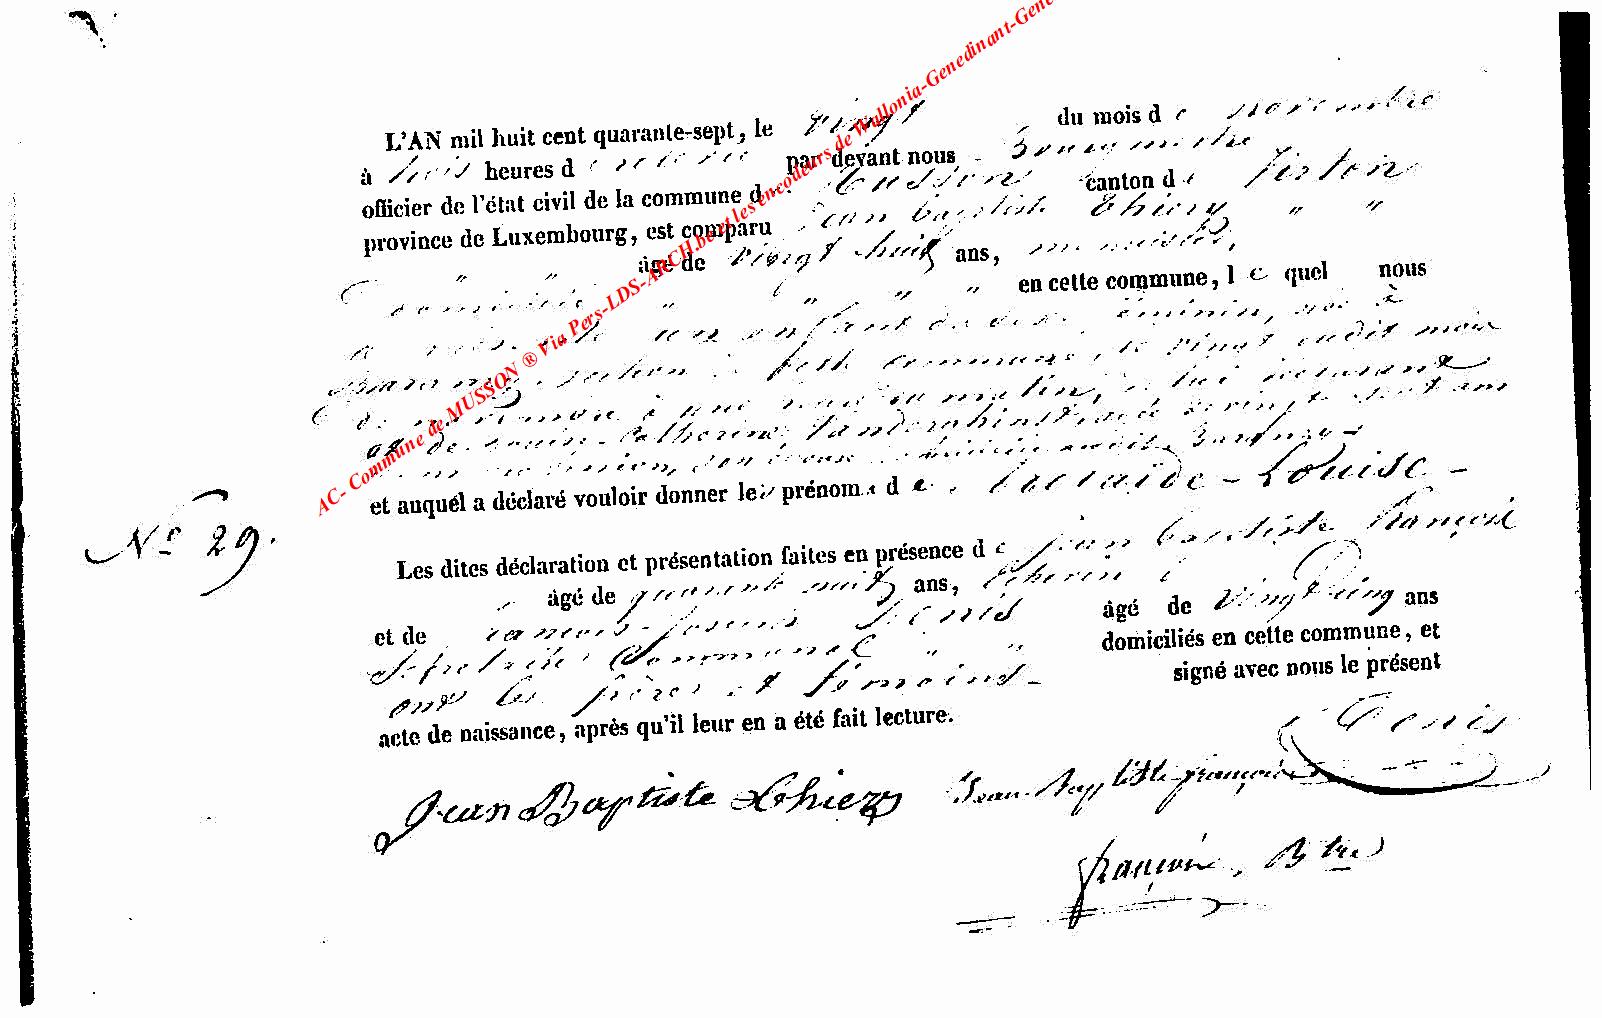 L'AN mil huit cent quarante-sept, le vingt du mois de novembre
à trois heures de relevée par devant nous Bourgmestre
officier de l'état civil de la commune de Musson canton de Virton
province de Luxembourg, est comparu Jean Baptiste Thiery " "
" " âgé de vingt huit ans, menuisier,
domicilié " " " " en cette commune, le quel nous
a un enfant du sexe féminin, né à
Baranzy, section de cette commune, le vingt dudit mois
de novembre à une heure du matin, de lui déclarant
et de Marie-Catherine, âgée de vingt sept ans
son épouse domiciliée audit Baranzy-
et auquel a déclaré vouloir donner les prénoms de Adelaïde-Louise-
N° 29.
Les dites déclaration et présentation faites en présence de Jean Baptiste François
âgé de quarante huit ans, Echevin
et de François-Joseph Denis âgé de vingt cinq ans
Secrétaire Communal " " domiciliés en cette commune, et
ont les père et témoins- signé avec nous le présent
acte de naissance, après qu'il leur en a été fait lecture.
Denis
Jean Baptiste Thiery Jean Baptiste françois
françois, Btre
AC- Commune de MUSSON ® Via Pers-LDS-ARCH.be et les encodeurs de Wallonia-Genedinant-Gene